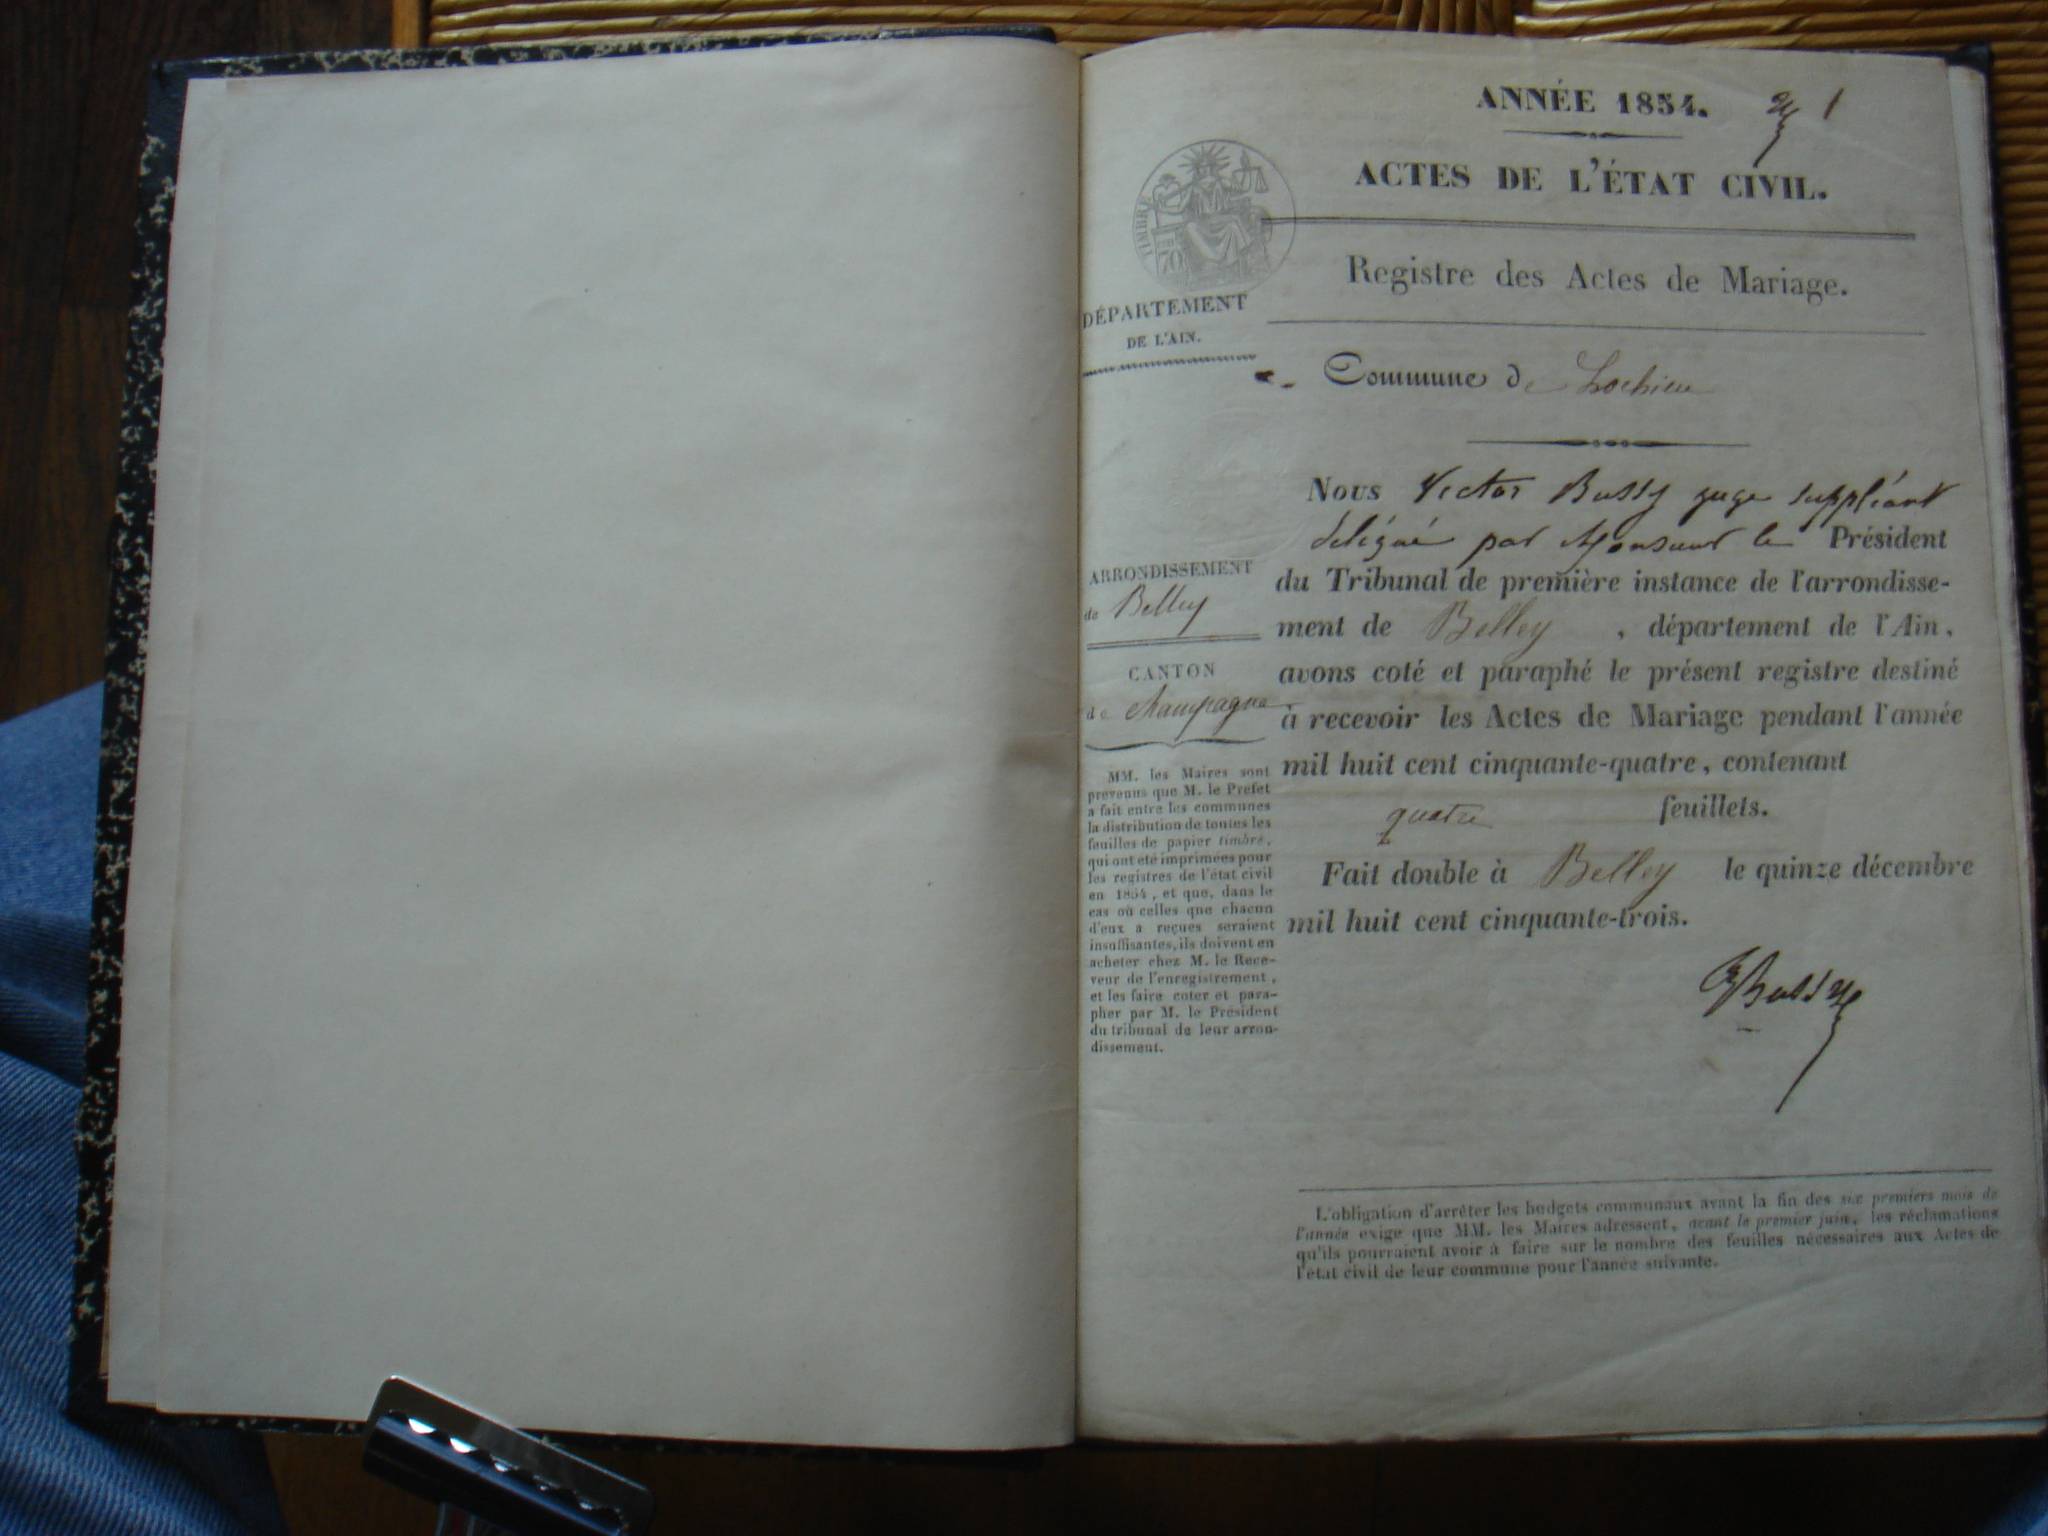 ANNÉE 1854. 1
ACTES DE L'ÉTAT CIVIL.
TIMBRE
70
Registre des Actes de Mariage.
DÉPARTEMENT
DE L'AIN.
Commune de Lochieu
Nous Victor Bussy juge suppléant
délégué par Monsieur le Président
du Tribunal de première instance de l'arrondisse-
ment de Belley, département de l'Ain,
avons coté et paraphé le présent registre destiné
à recevoir les Actes de Mariage pendant l'année
mil huit cent cinquante-quatre, contenant
quatre feuillets.
Fait double à Belley le quinze décembre
mil huit cent cinquante-trois.
Bussy
ARRONDISSEMENT
de Belley
CANTON
de Champagne
MM. les Maires sont
prévenus que M. le Préfet
a fait entre les communes
la distribution de toutes les
feuilles de papier timbré,
qui ont été imprimées pour
les registres de l'état civil
en 1854, et que, dans le
cas où celles que chacun
d'eux a reçues seraient
insuffisantes, ils doivent en
acheter chez M. le Rece-
veur de l'enregistrement,
et les faire coter et para-
pher par M. le Président
du tribunal de leur arron-
dissement.
L'obligation d'arrêter les budgets communaux avant la fin des six premiers mois de
l'année exige que MM. les Maires adressent, avant le premier juin, les réclamations
qu'ils pourraient avoir à faire sur le nombre des feuilles nécessaires aux Actes de
l'état civil de leur commune pour l'année suivante.